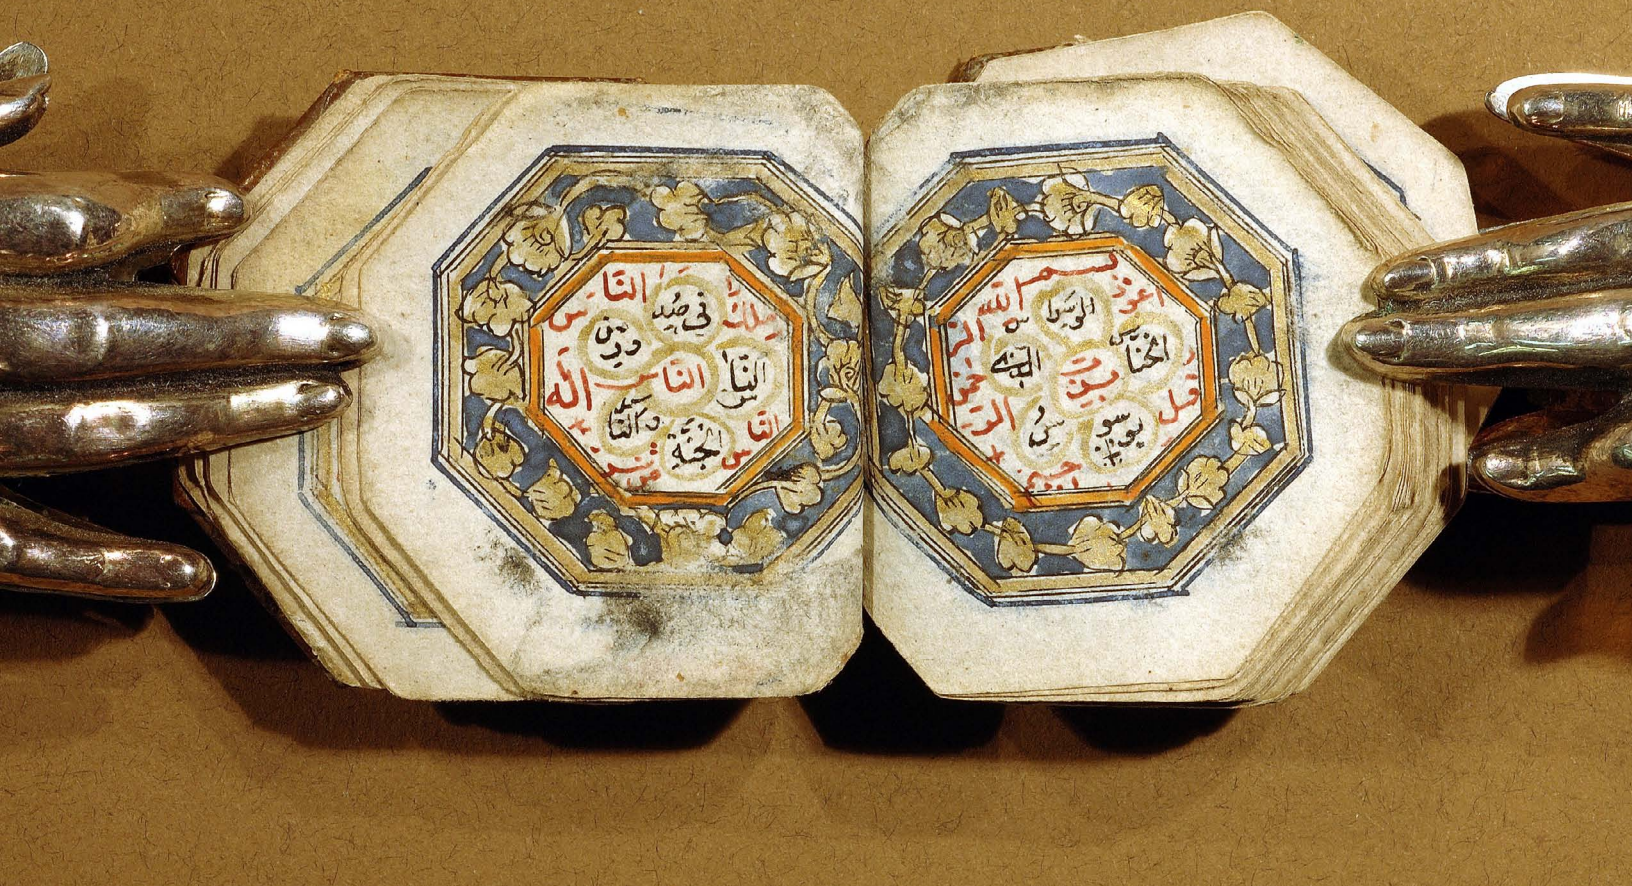 بسم
الله
الرحمن
الرحيم
قل
اعوذ
برب
الوسوا
س
الخناس
يوسو
سُ
النَّاس
ملك
النَّاس
اله
النَّاس
من شر
فى صُد
ور
النَّاس
الجنَّةِ
والنَّاس